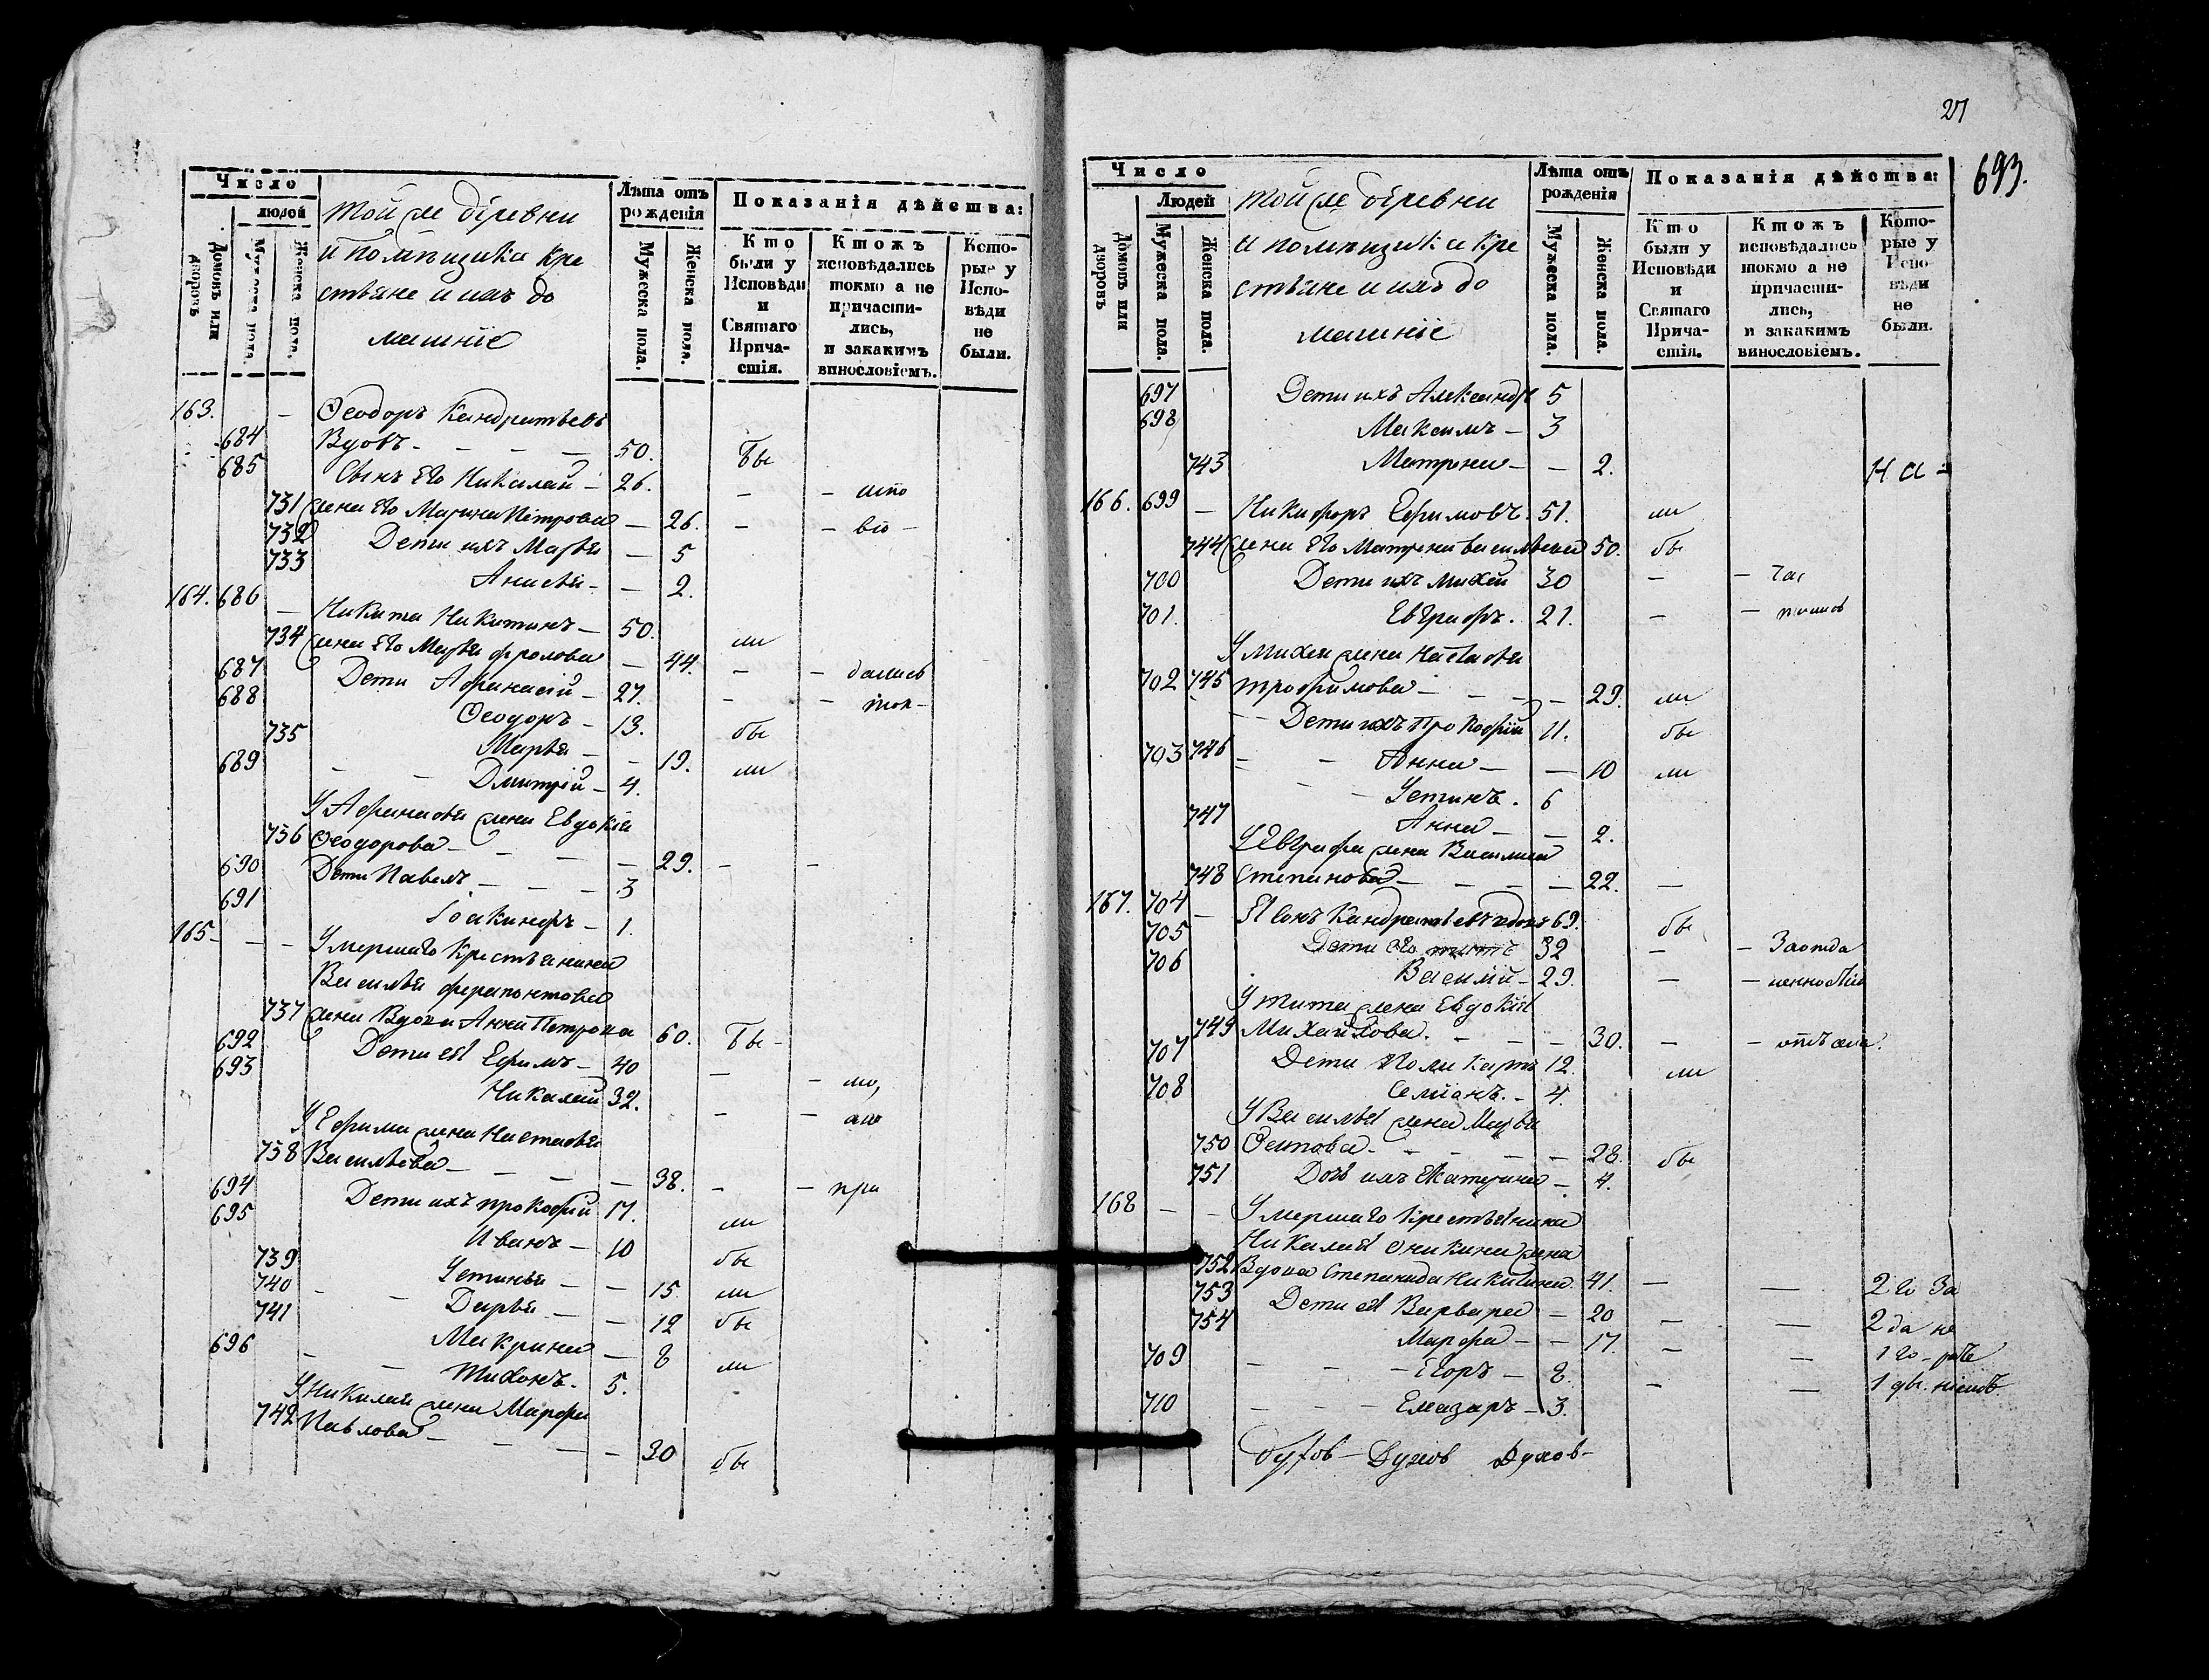 Число
людей
Домовъ или дворовъ
Мужеска пола.
Женска пола.
той же деревни
и помѣщика кре
стьяне и ихъ до
машніе
Лѣта отъ рожденія
Мужеска пола.
Женска пола.
Показанія дѣйства:
Кто были у Исповѣди и Святаго Причастія.
Ктожъ исповѣдались токмо а не причастились, и закакимъ винословіемъ.
Которые у Исповѣди не были.
163. — Ѳеодоръ Кандратьевъ
684 Вдовъ — — — 50. бы
685 Сынъ его Николай — 26. — — што
731 жена его Марина Петрова — 26. — — въ —
732 Дети ихъ Марья — 5
733 Анисья — — 2.
164. 686 — Никита Никитинъ — 50. ли
734 жена его Марья Фролова — 44. — — дались
687 Дети Афанасій — 27. — — ток —
688 Ѳеодоръ — 13. бы
735 Марья — — 19. ли
689 — — Дмитрій — 4.
У Афанасья жена Евдокія
736 Ѳеодорова — — — — 29. — —
690 Дети Павелъ — — — 3
691 Іоакинфъ — 1.
165 — — — Умершаго крестьянина
Василья Ферапонтова
737 жена Вдова Анна Петрова 60. бы —
692 Дети ея Ефимъ — 40 — — мо,
693 Николай 32. — —
У Ефима жена Настасья
738 Васильева — — — — 38. — — при
694 Дети ихъ Прокофій 17. ли
695 Иванъ — 10 бы
739 Устинья — — 15. ли
740 — — Дарья — — 12 бы
741 Макрина — 8 ли
696 — — Тихонъ. 5.
У Николая жена Марфа
742 Павлова — — — — 30 бы
27
693.
Число
Людей
Домовъ или дворовъ
Мужеска пола.
Женска пола.
той же деревни
и помѣщика кре
стьяне и ихъ до
машніе
Лѣта отъ рожденія
Мужеска пола.
Женска пола.
Показанія дѣйства:
Кто были у Исповѣди и Святаго Причастія.
Ктожъ исповѣдались токмо а не причастились, и закакимъ винословіемъ.
Которые у Исповѣди не были.
697 Дети ихъ Александръ 5
698 Максимъ — 3
743 Матрена — — 2. На —
166. 699 — Никифоръ Ефимовъ. 51. ли
744 жена его Матрена Васильева 50. бы
700 Дети ихъ Михей 30 — — Час
701. Евграфъ. 21. — —
У Михея жена Настасья
702 745 Трофимова — — — — 29. ли
— — Дети ихъ Прокофій 11. бы
703 746 — — Анна — — 10 ли
— Устинъ. 6
747 Анна — — 2.
У Евграфа жена Василиса
748 Степанова — — — — 22. —
167. 704 — Ясонъ Кандратьевъ вдовъ 69. бы
705 Дети его титъ 32 — — Заотда
706 Василій — 29. — — ленностію
У тита жена Евдокія
749 Михайлова. — — — 30. — — отъ села.
707 Дети Поликарпъ 12. ли
708 Семіонъ. — 4.
У Василья жена Марья
750 Осипова — — — — 28. бы
751 Дочь ихъ Екатерина — 4.
168 — — Умершаго крестьянина
Николая Оникина жена
752 Вдова Степанида Никитина. 41. — — 2 го За
753 Дети ея Варвара — 20 — — 2 да не
754 Марфа — — 17. — — 1 го —
709 — — — Егоръ — 8. — — 1 дв.
710 — — — Елазаръ — 3.
Духов — Духов Духов —